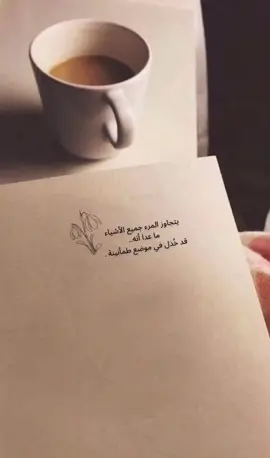 يتجاوز المرء جميع الأشياء
ما عدا أنه..
قد خُذل في موضع طمأنينة.